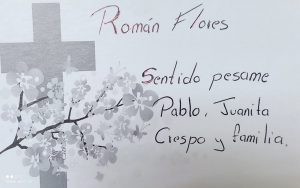 Román Flores
Sentido pesame
Pablo, Juanita
Crespo y familia.